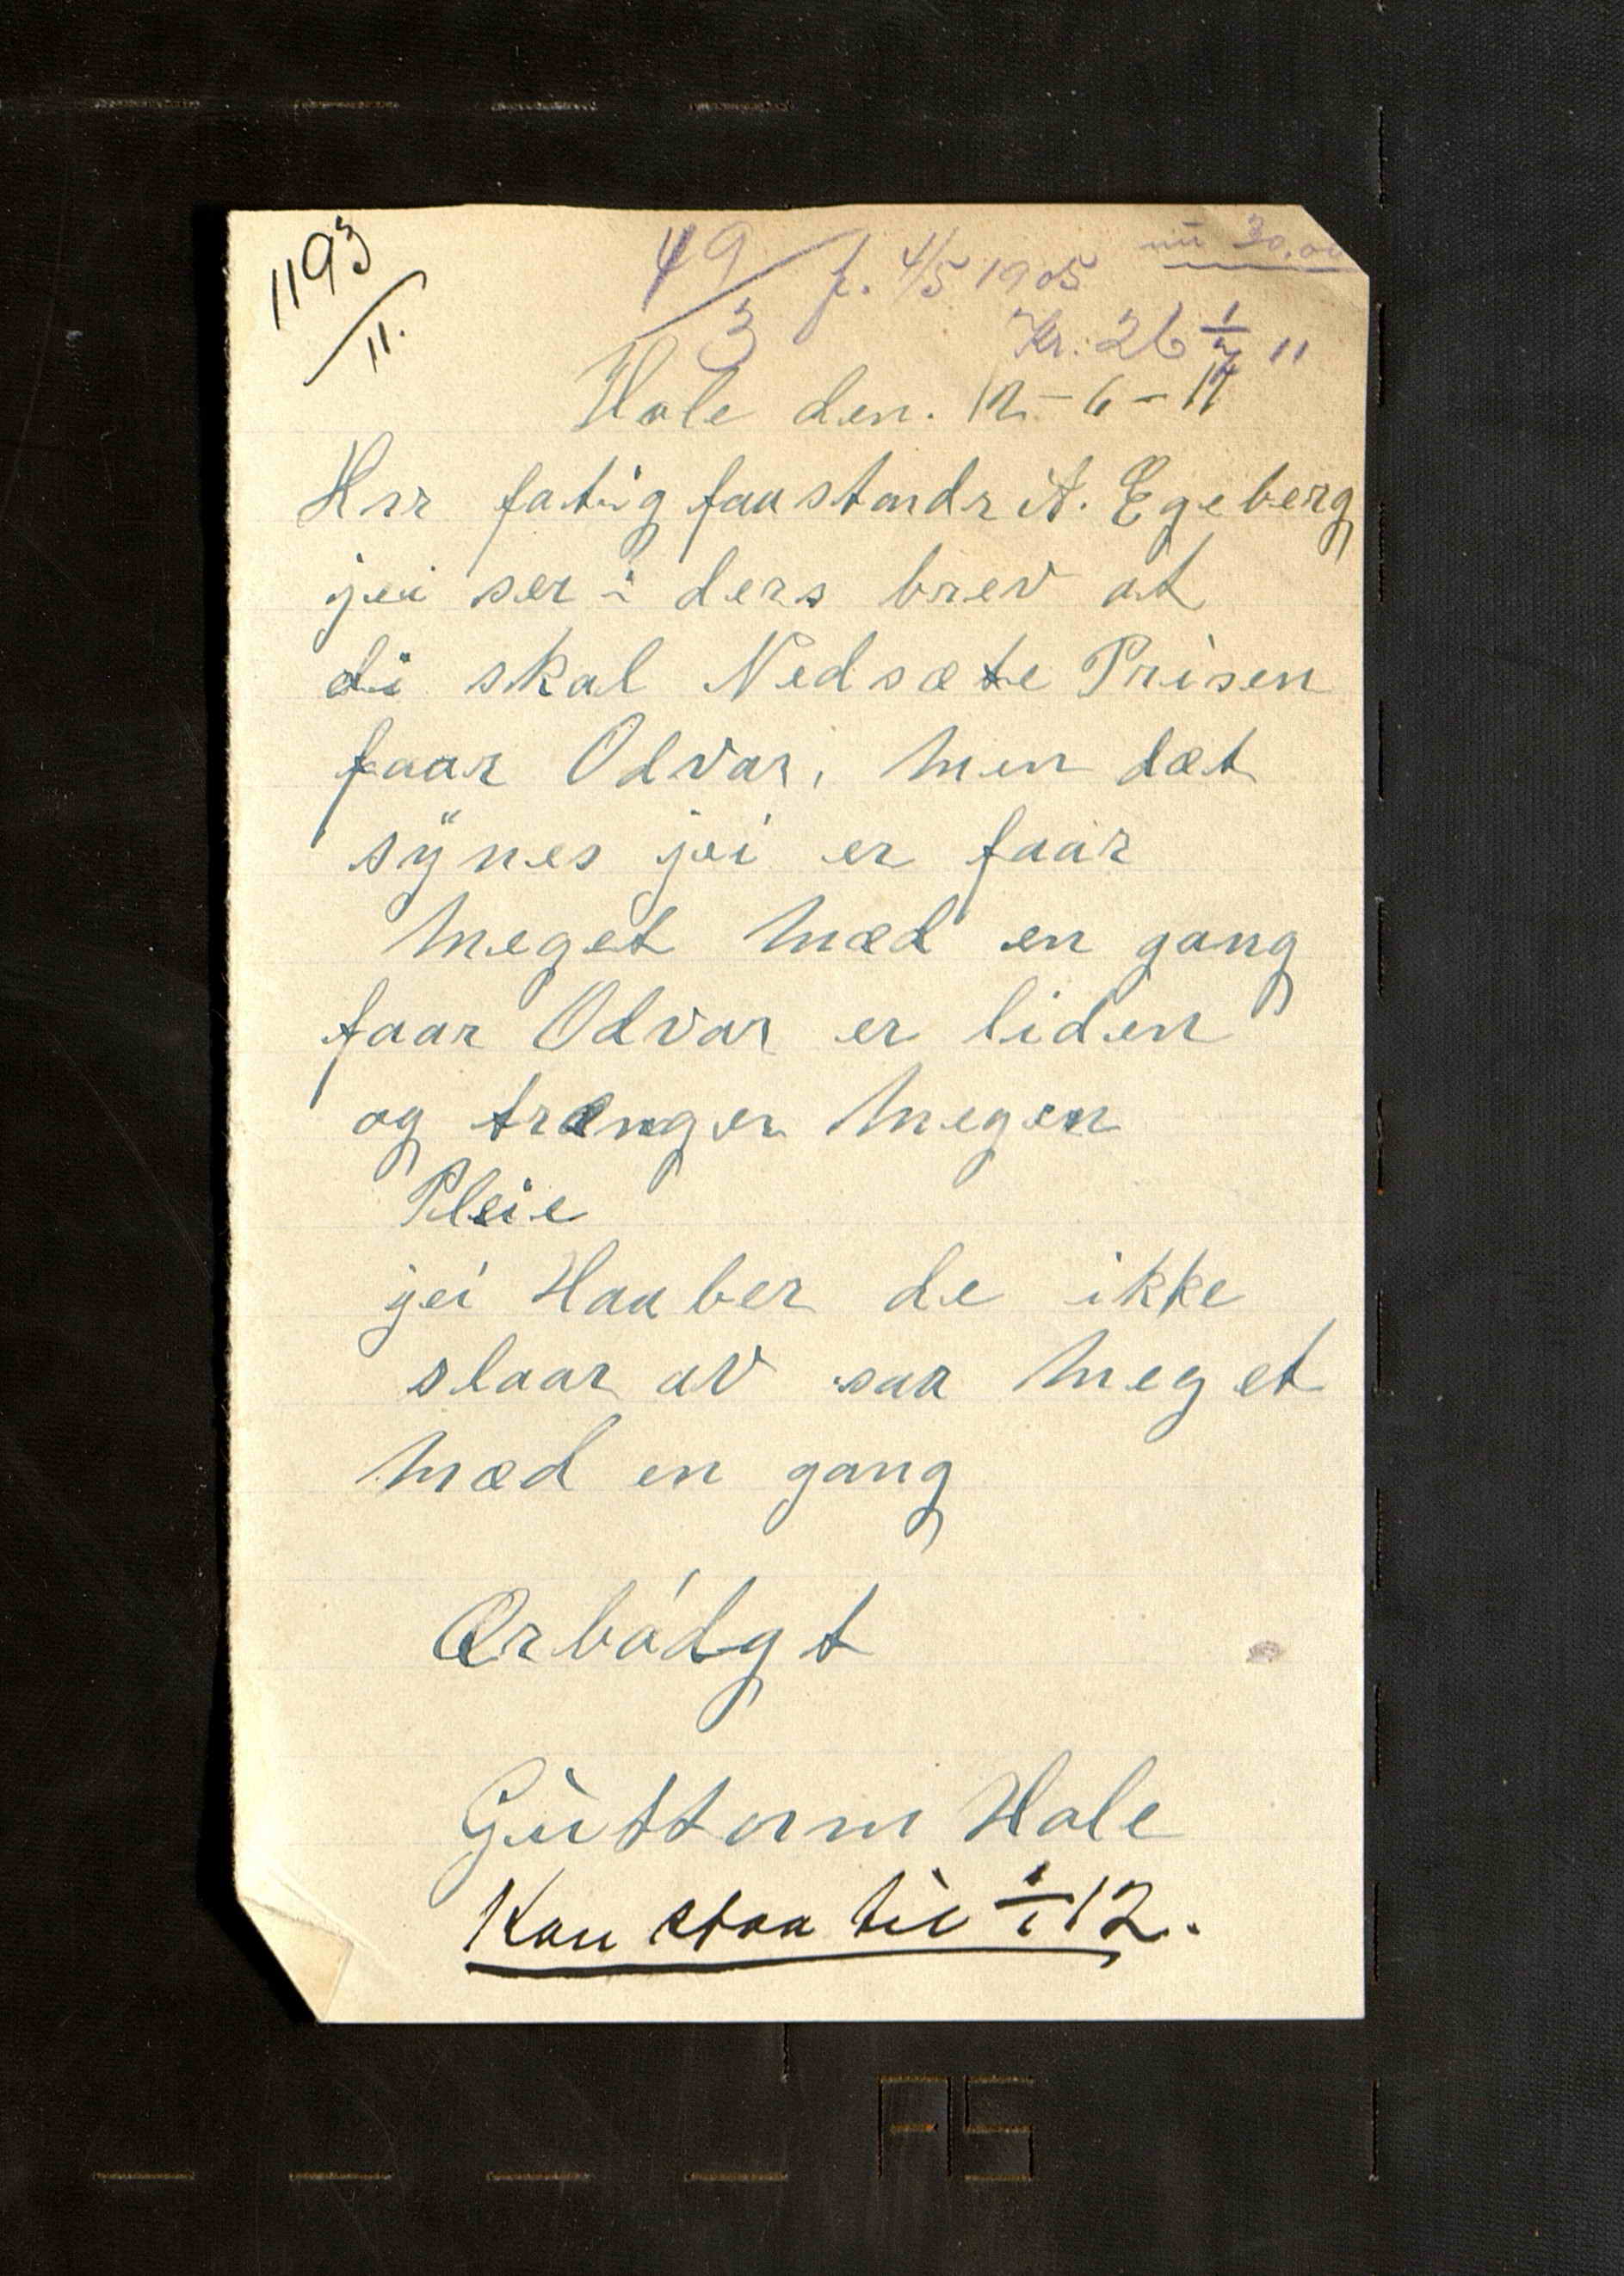 1193/11.
49/3 f. 4/5 1905
nu 30.00
Kr. 26 1/7 11
Hole den. 12-6-11
Hrr fatig faastandr A. Egeberg
jei ser i ders brev at
di skal Nedsæte Prisen
faar Odvar, men dæt
synes jei er faar
meget mæd en gang
faar Odvar er liden
og trænger megen
Pleie
jei Haaber de ikke
slaar av saa meget
mæd en gang
Ærbódgt
Guttorm Hole
Kan staa til 1/1 12.